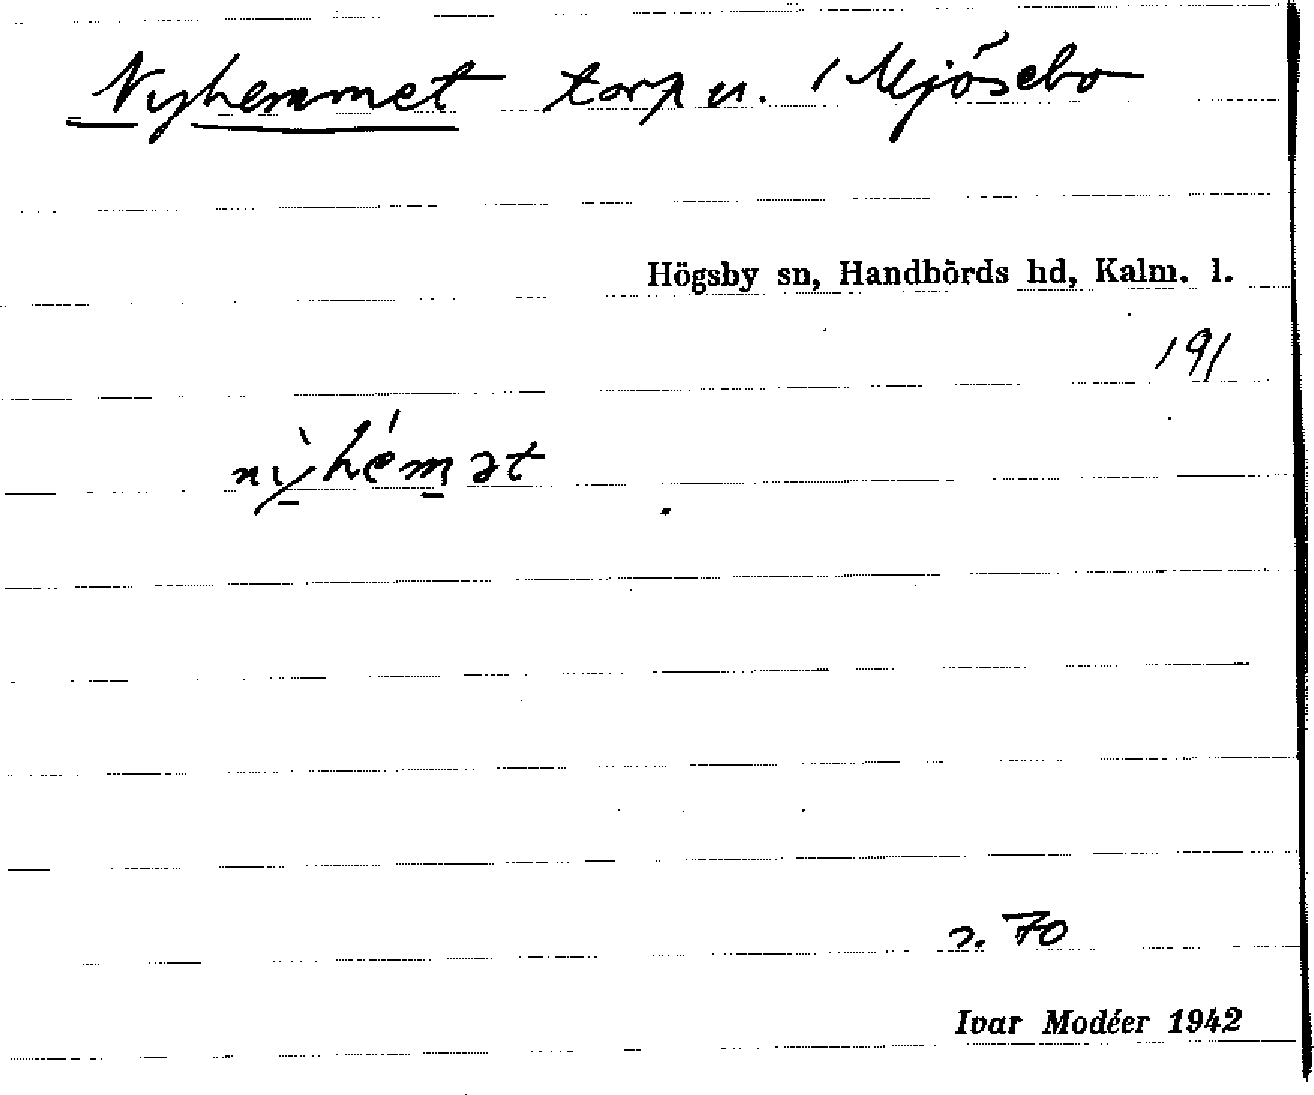 Nyhemmet torp u. Mjösebo
Högsby sn, Handbörds hd, Kalm. l.
191
nỳhémət
s. 70
Ivar Modéer 1942